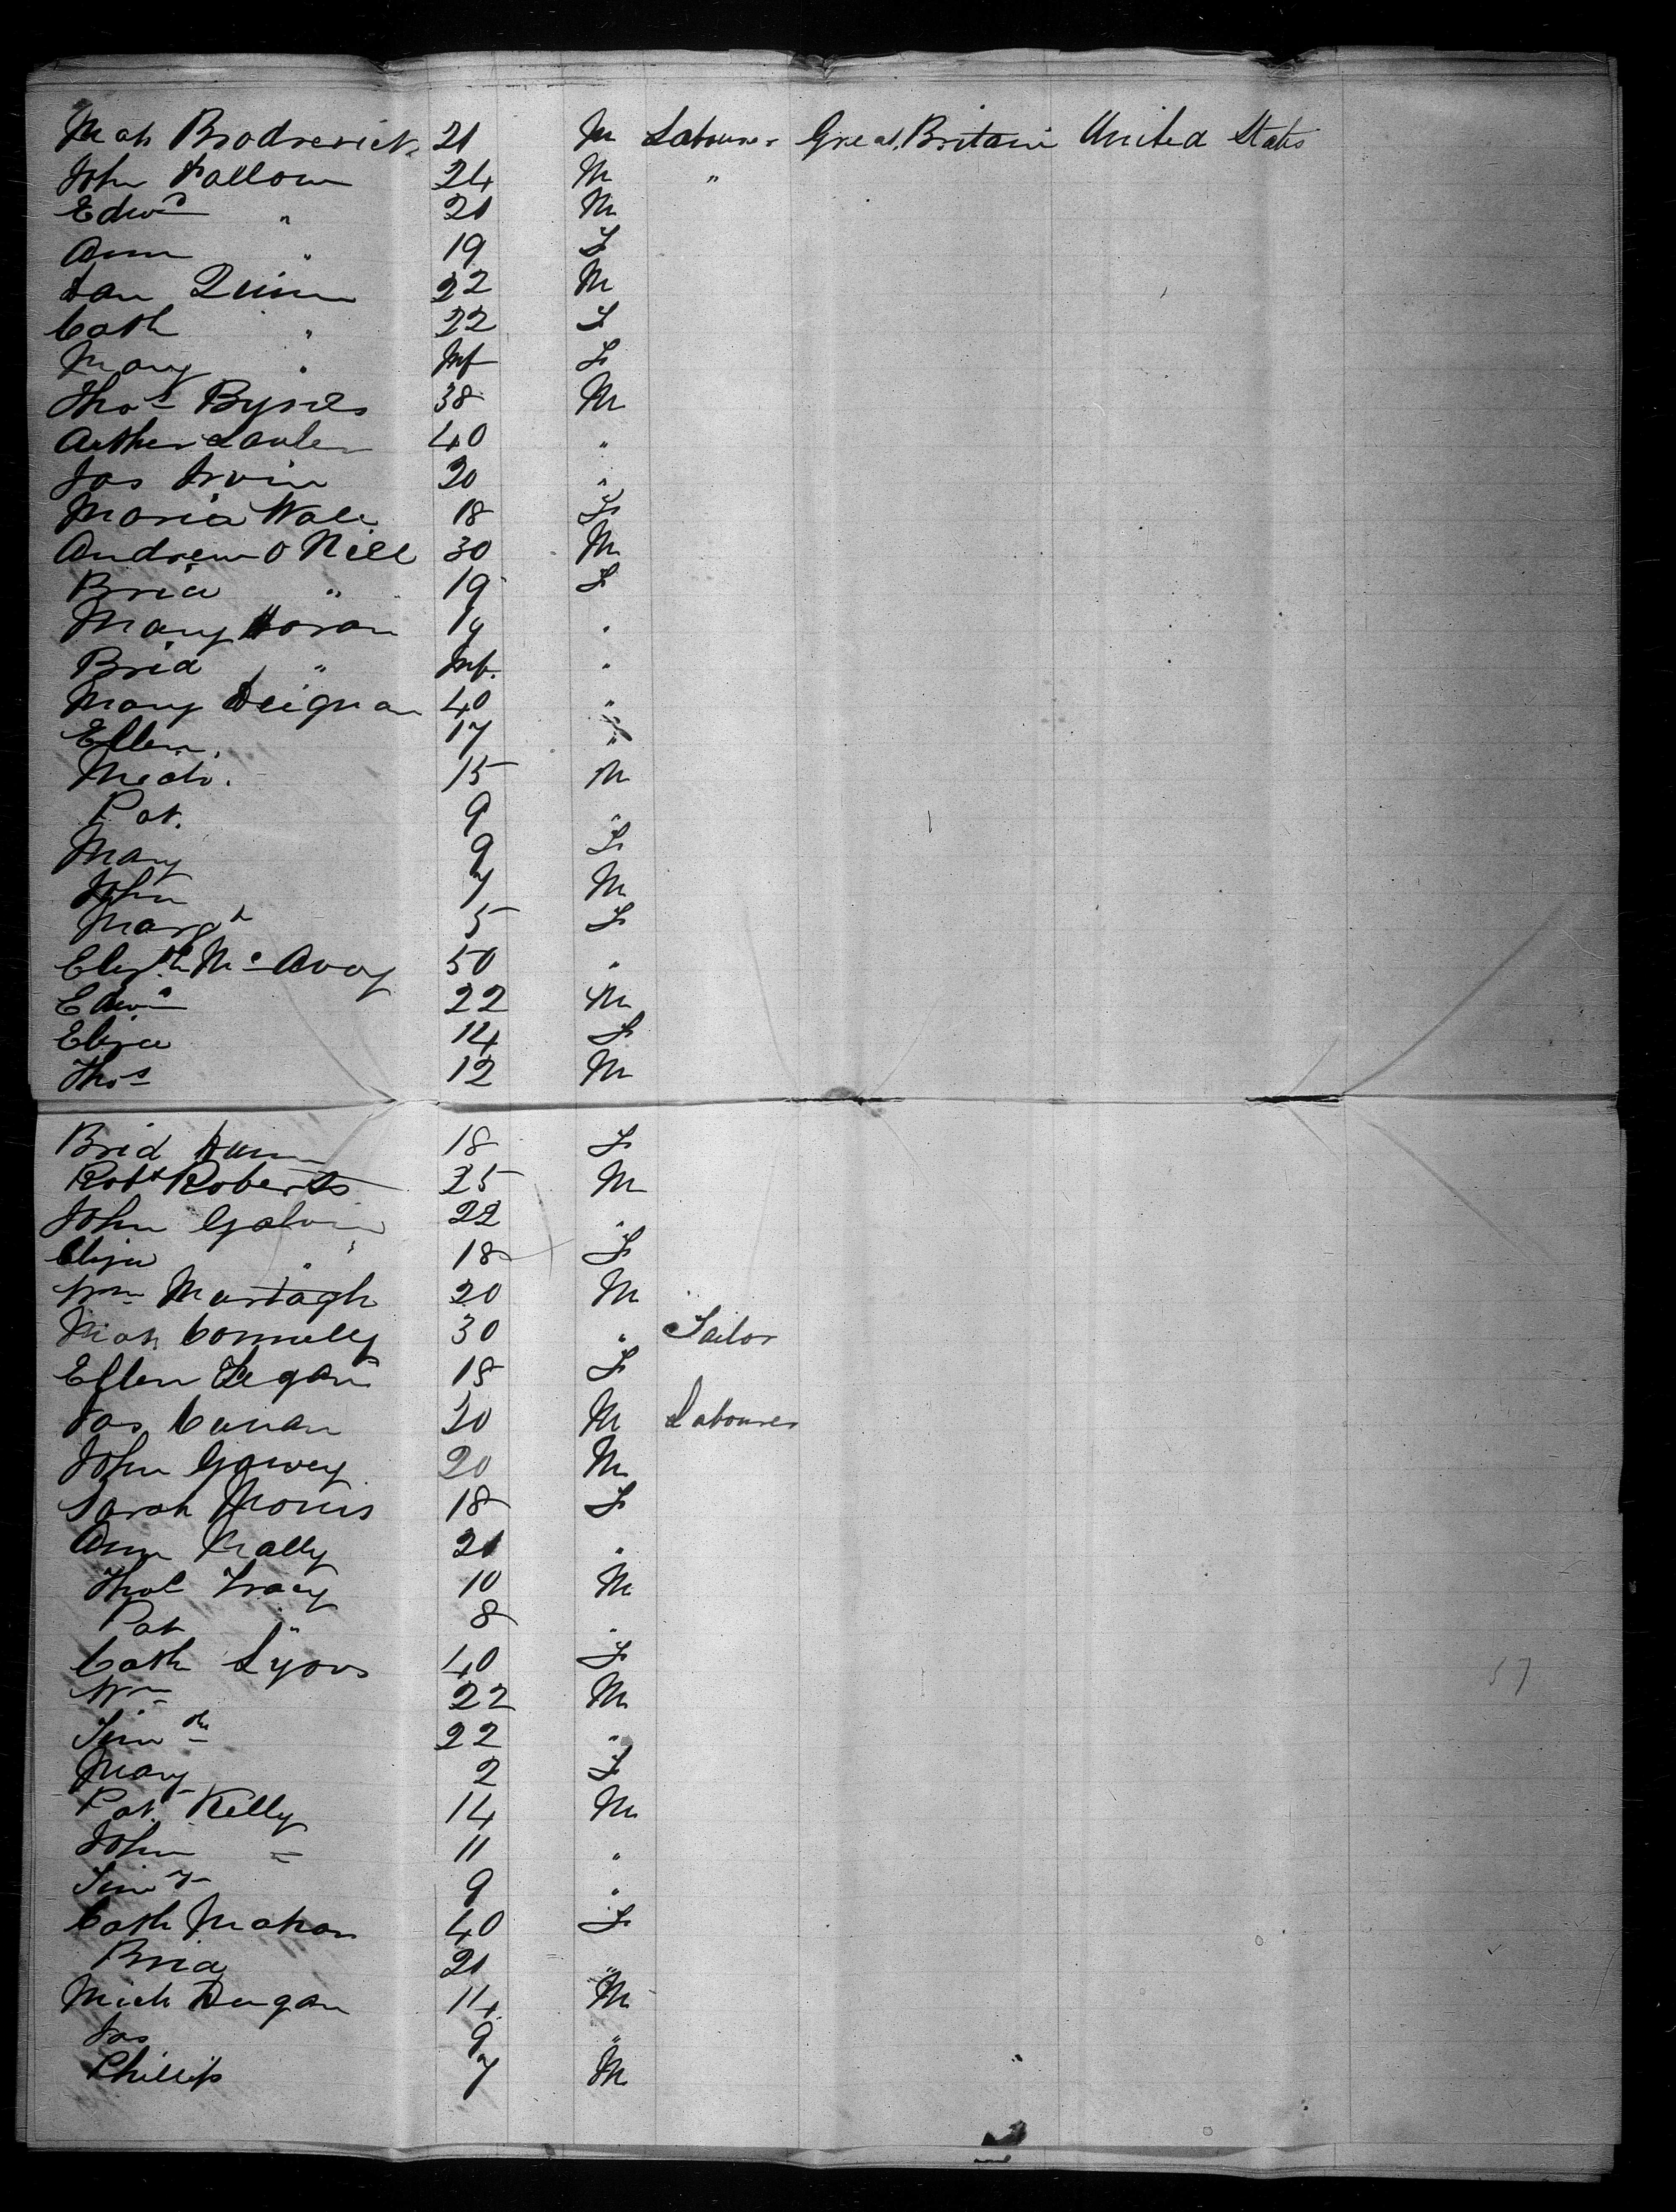 Mah Brodrerick 21 M Labourer Great Britain United States
John Fallon 24 M "
Edwd " 21 M
Ann " 19 F
Dan Quinn 22 M
Cath " 22 F
Mary " Inf F
Thos Byrnes 38 M
Arther Lawler 40 "
Jas Irvin 20 "
Maria Wall 18 F
Andrew O Niell 30 M
Brid " 19 F
Mary Horan 19 "
Brid " Inf. "
Mary Deignan 40 "
Ellen 17 "
Mich. 15 M
Pat. 9 "
Mary 9 F
John 7 M
Margt 5 F
Elizth Mc Avoy 50 "
Edwd 22 M
Eliza 14 F
Thos 12 M
Brid Dunn 18 F
Robt Roberts 25 M
John Galvin 22 "
Eliza " 18 F
Wm Murtagh 20 M
Mah Connelly 30 " Tailor
Ellen Fegan 18 F
Jas Curran 20 M Labourer
John Gowey 20 M
Sarah Morris 18 F
Ann Mally 21 "
Thos Tracy 10 M
Pat " 8 "
Cath Lyons 40 F
Wm 22 M
Timothy 22 "
Mary 2 F
Pat Kelly 14 M
John " 11 "
Timy 9 "
Cath Mahon 40 F
Brid 21 "
Mich Dugan 14 M
Jas 9 "
Phillip 7 M
57